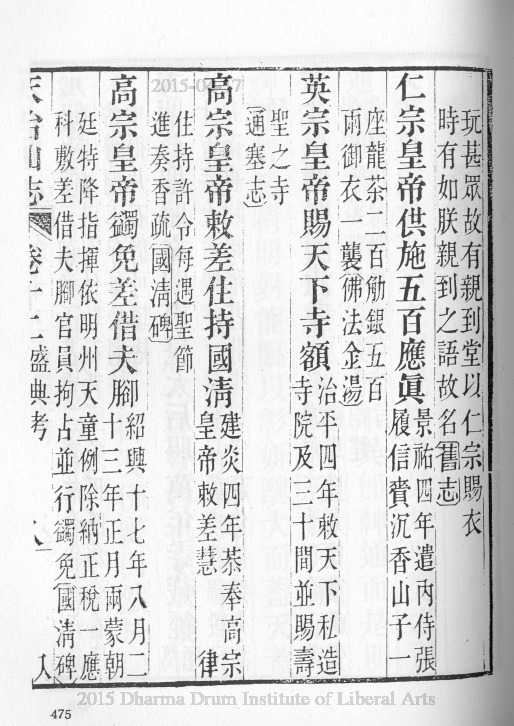 玩甚眾故有親到堂以仁宗賜衣
時有如朕親到之語故名舊志
仁宗皇帝供施五百應眞景祐四年遣內侍張
履信賫沉香山子一
座龍茶二百觔銀五百
兩御衣一襲佛法金湯
英宗皇帝賜天下寺額治平四年敕天下私造
寺院及三十間並賜壽
聖之寺
通塞志
高宗皇帝敕差住持國清建炎四年恭奉高宗
皇帝敕差慧律
住持許令每遇聖節
進奏香疏國清碑
高宗皇帝蠲免差借夫腳紹興十七年八月二
十三年正月兩蒙朝
廷特降指揮依明州天童例除納正稅一應
科敷差借夫腳官員拘占並行蠲免國清碑
天台山志 卷十二盛典考 八
475
2015 Dharma Drum Institute of Liberal Arts